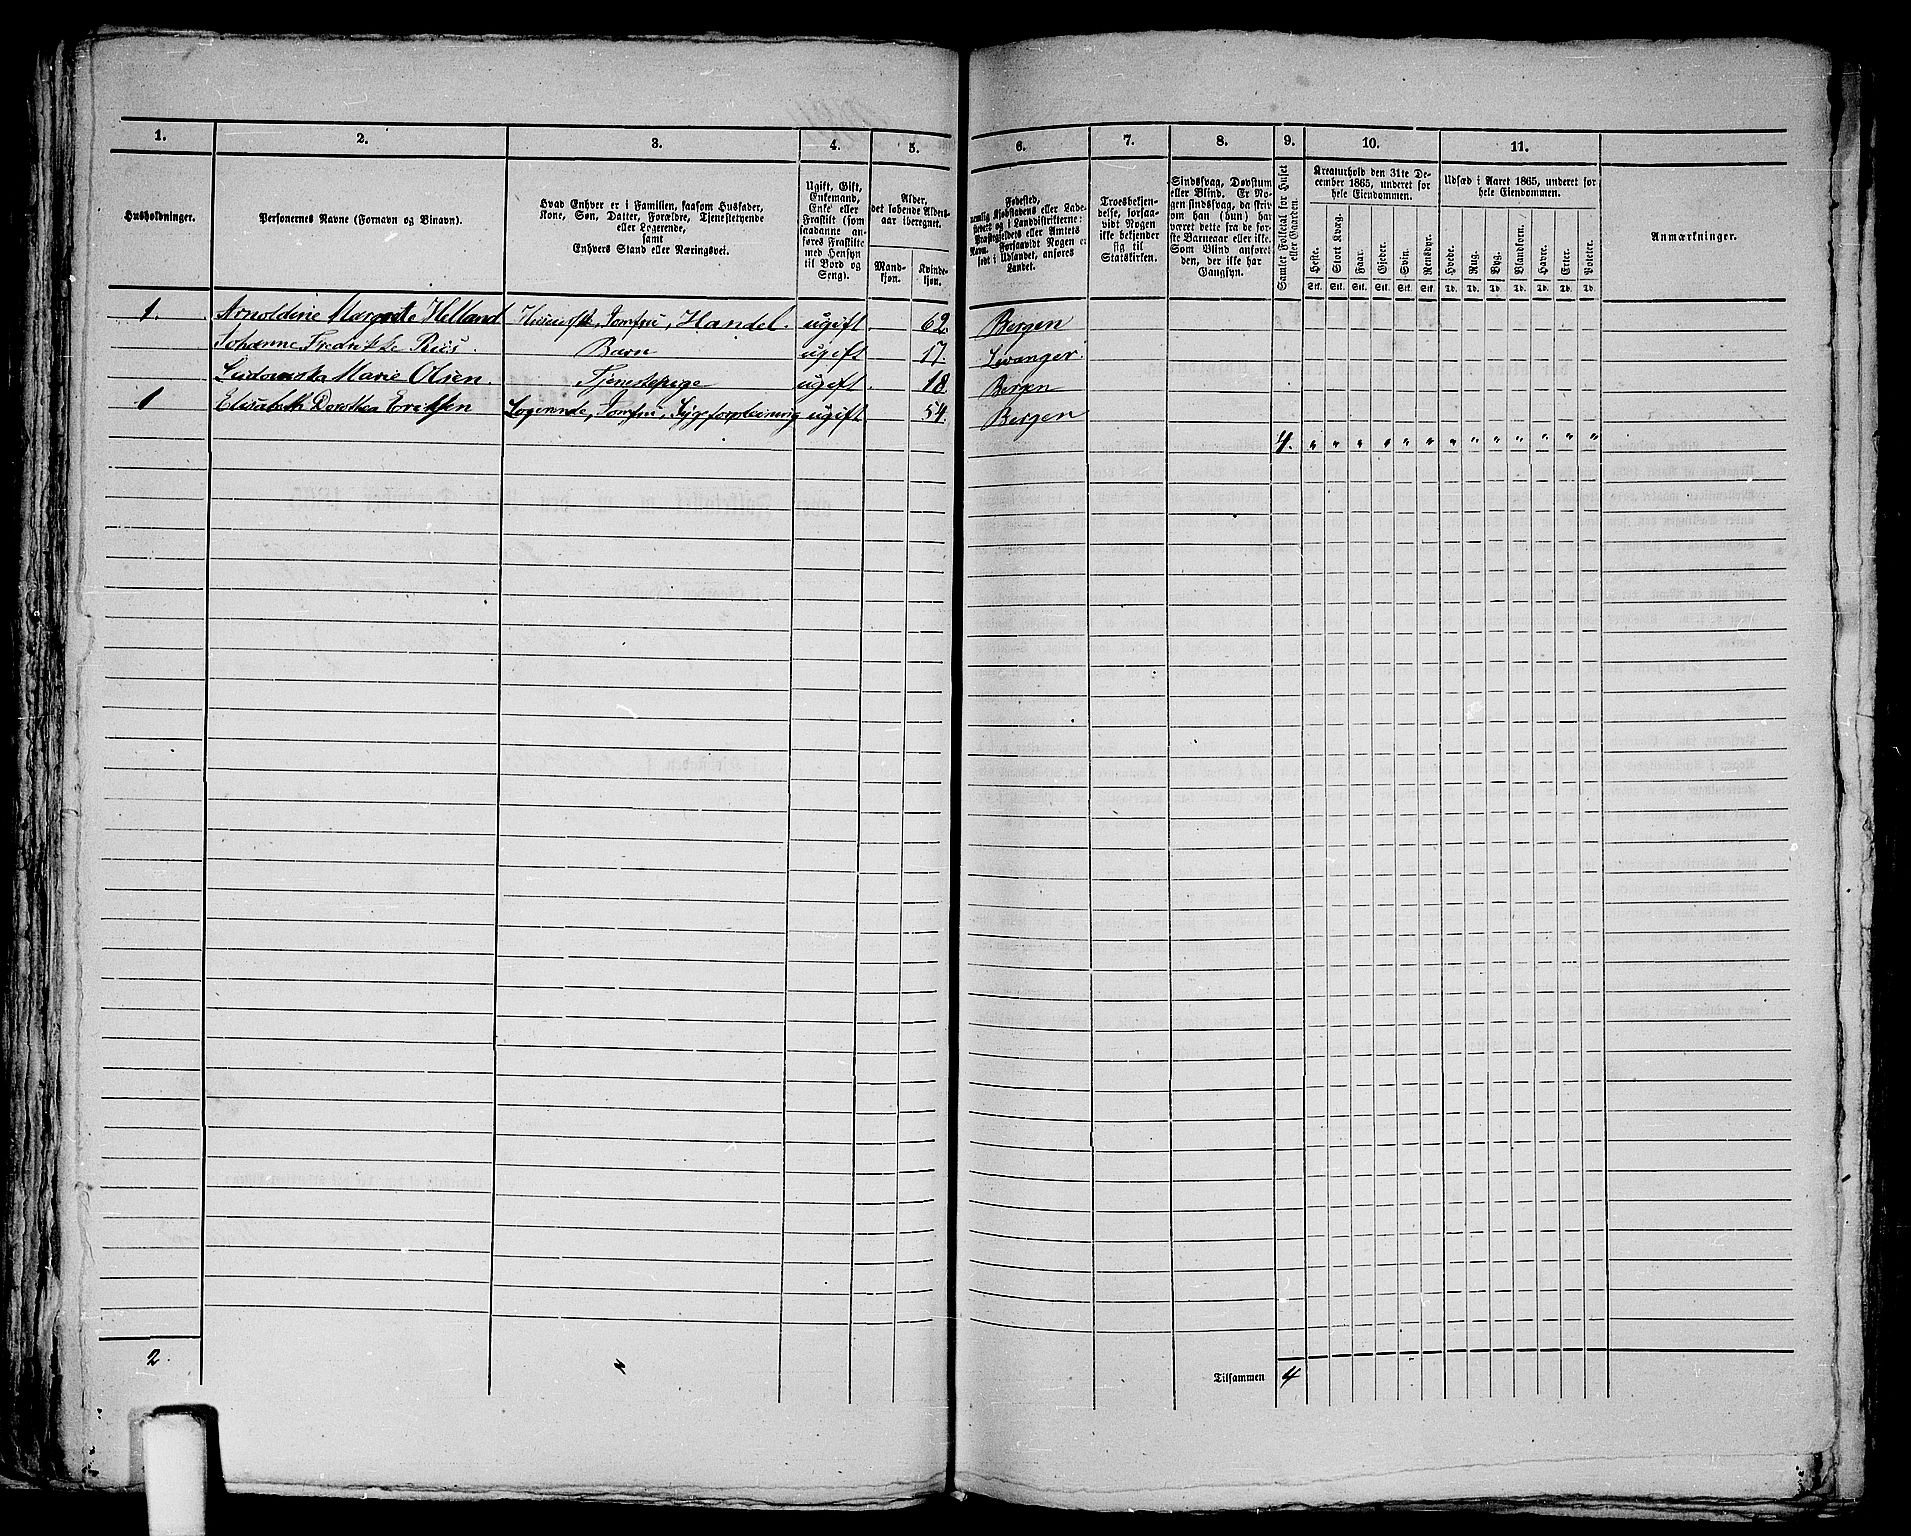 1. 2. 3. 4. 5. 6. 7. 8. 9. 10. 11.
Husholdninger.
Personernes Navne (Fornavn og Binavn).
Hvad Enhver er i Familien, saasom Husfader,
Kone, Søn, Datter, Forældre, Tjenestetyende
eller Logerende,
samt
Enhvers Stand eller Næringsvei.
Ugift, Gift,
Enkemand,
Enke eller
Fraskilt (som
saadanne an-
føres Fraskilte
med Hensyn
til Bord og
Seng).
Alder,
det løbende Alders-
aar iberegnet.
Mand-
kjøn.
Kvinde-
kjøn.
Fødested,
nemlig Kjøbstadens eller Lade-
stedets og i Landdistrikterne:
Præstegjeldets eller Amtets
Navn. Forsaavidt Nogen er
født i Udlandet, anføres
Landet.
Troesbekjen-
delse, forsaa-
vidt Nogen
ikke bekjender
sig til
Statskirken.
Sindssvag, Døvstum
eller Blind. Er No-
gen sindssvag, da skriv
om han (hun) har
været dette fra de før-
ste Barneaar eller ikke.
Som Blind anføres
den, der ikke har
Gangsyn.
Samlet Folketal for Huset
eller Gaarden.
Kreaturhold den 31te De-
cember 1865, underet for
hele Eiendommen.
Heste. Stort Kvæg. Faar. Gjeder. Svin. Rensdyr.
Stk. Stk. Stk. Stk. Stk. Stk.
Udsæd i Aaret 1865, underet for
hele Eiendommen.
Hvede. Rug. Byg. Blandkorn. Havre. Erter. Poteter.
Td. Td. Td. Td. Td. Td. Td.
Anmærkninger.
1. Arnoldine Margrete Helland Jomfru, Handel. ugift 62. Bergen
Johanne Fredrikke Riis. Barn ugift 17. Levanger
Ludovika Marie Olsen. Tjenestepige ugift. 18. Bergen
1 Elisabeth Dorothea Eriksen Logerende, Jomfru, ugift. 54. Bergen
4. " " " " " " " " " " " " "
2.
Tilsammen 4